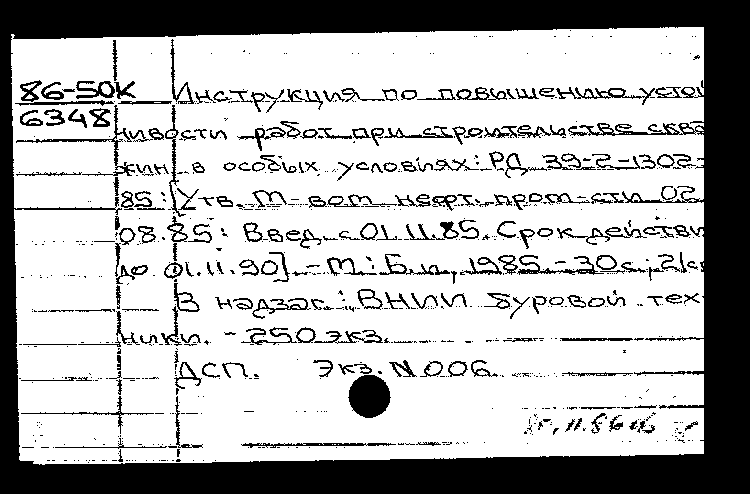 86-50К Инструкция по повышению устой
6348 чивости работ при строительстве сква
жин в особых условиях: РД 39-2-1302-
85: [Утв. М-вом нефт. пром-сти 02.
08.85: Введ. с 01.11.85. Срок действи
до 01.11.90]. - М.: Б.и., 1985. - 30 с.; 21 см
В надзаг.: ВНИИ буровой тех-
ники. - 250 экз.
ДСП. Экз. N 006.